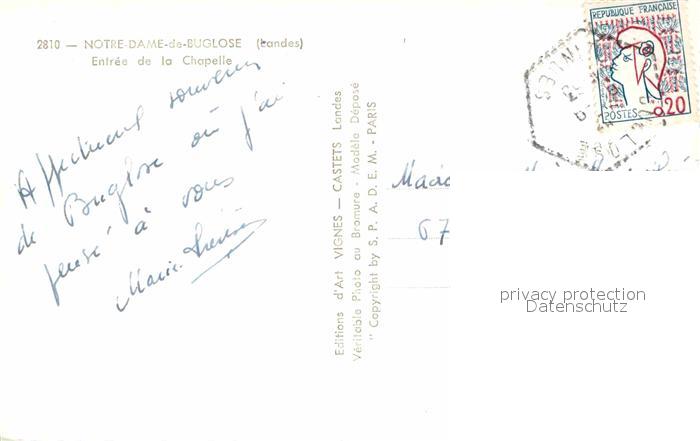 2810 — NOTRE-DAME-de-BUGLOSE (Landes)
Entrée de la Chapelle
Affectueux souvenir
de Buglose où j'ai
pensé à vous
Marie
Editions d'Art VIGNES — CASTETS Landes
Véritable Photo au Bromure - Modèle Déposé
" Copyright by S. P. A. D. E. M. - PARIS
REPUBLIQUE FRANÇAISE
POSTES 0,20
67
privacy protection
Datenschutz